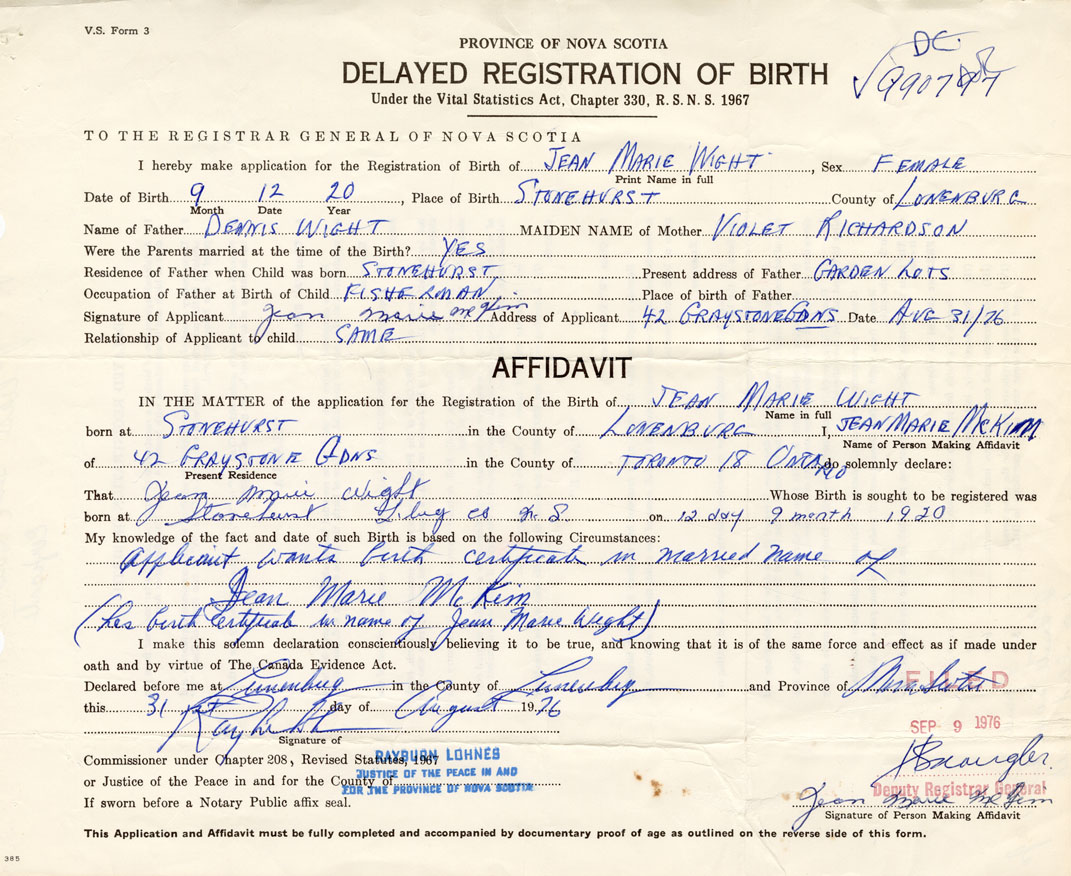 V.S. Form 3
PROVINCE OF NOVA SCOTIA
DELAYED REGISTRATION OF BIRTH
Under the Vital Statistics Act, Chapter 330, R. S. N. S. 1967
DC
TO THE REGISTRAR GENERAL OF NOVA SCOTIA
I hereby make application for the Registration of Birth of JEAN MARIE WIGHT, Sex FEMALE
Print Name in full
Date of Birth 9 12 20, Place of Birth STONEHURST County of LUNENBURG
Month Date Year
Name of Father DENNIS WIGHT MAIDEN NAME of Mother VIOLET RICHARDSON
Were the Parents married at the time of the Birth? YES
Residence of Father when Child was born STONEHURST Present address of Father GARDEN LOTS
Occupation of Father at Birth of Child FISHERMAN Place of birth of Father
Signature of Applicant Jean Marie McKim Address of Applicant 42 GRAYSTONE GDNS Date AUG 31/76
Relationship of Applicant to child SAME
AFFIDAVIT
IN THE MATTER of the application for the Registration of the Birth of JEAN MARIE WIGHT
Name in full
born at STONEHURST in the County of LUNENBURG I, JEAN MARIE McKIM
Name of Person Making Affidavit
of 42 GRAYSTONE GDNS in the County of TORONTO 18 ONTARIO do solemnly declare:
Present Residence
That Jean Marie Wight Whose Birth is sought to be registered was
born at Stonehurst Lbug co N. S on 12 day 9 month 1920
My knowledge of the fact and date of such Birth is based on the following Circumstances:
Applicant wants birth certificate in married name of
Jean Marie McKim
(has birth certificate in name of Jean Marie Wight)
I make this solemn declaration conscientiously believing it to be true, and knowing that it is of the same force and effect as if made under
oath and by virtue of The Canada Evidence Act.
Declared before me at Lunenburg in the County of Lunenburg and Province of Nova Scotia
FILED
this 31st day of August 1976
SEP 9 1976
Signature of
Commissioner under Chapter 208, Revised Statutes, 1967
RAYBURN LOHNES
or Justice of the Peace in and for the County of
JUSTICE OF THE PEACE IN AND
FOR THE PROVINCE OF NOVA SCOTIA
Deputy Registrar General
If sworn before a Notary Public affix seal.
Jean Marie McKim
Signature of Person Making Affidavit
This Application and Affidavit must be fully completed and accompanied by documentary proof of age as outlined on the reverse side of this form.
385